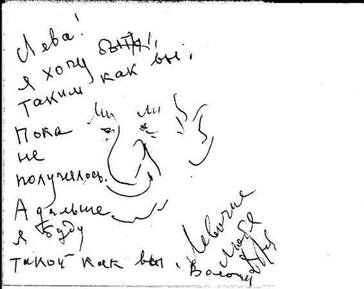 Лева!
Я хочу быть
таким как вы.
Пока
не
получилось.
А дальше
я буду
такой как вы.
Левочке